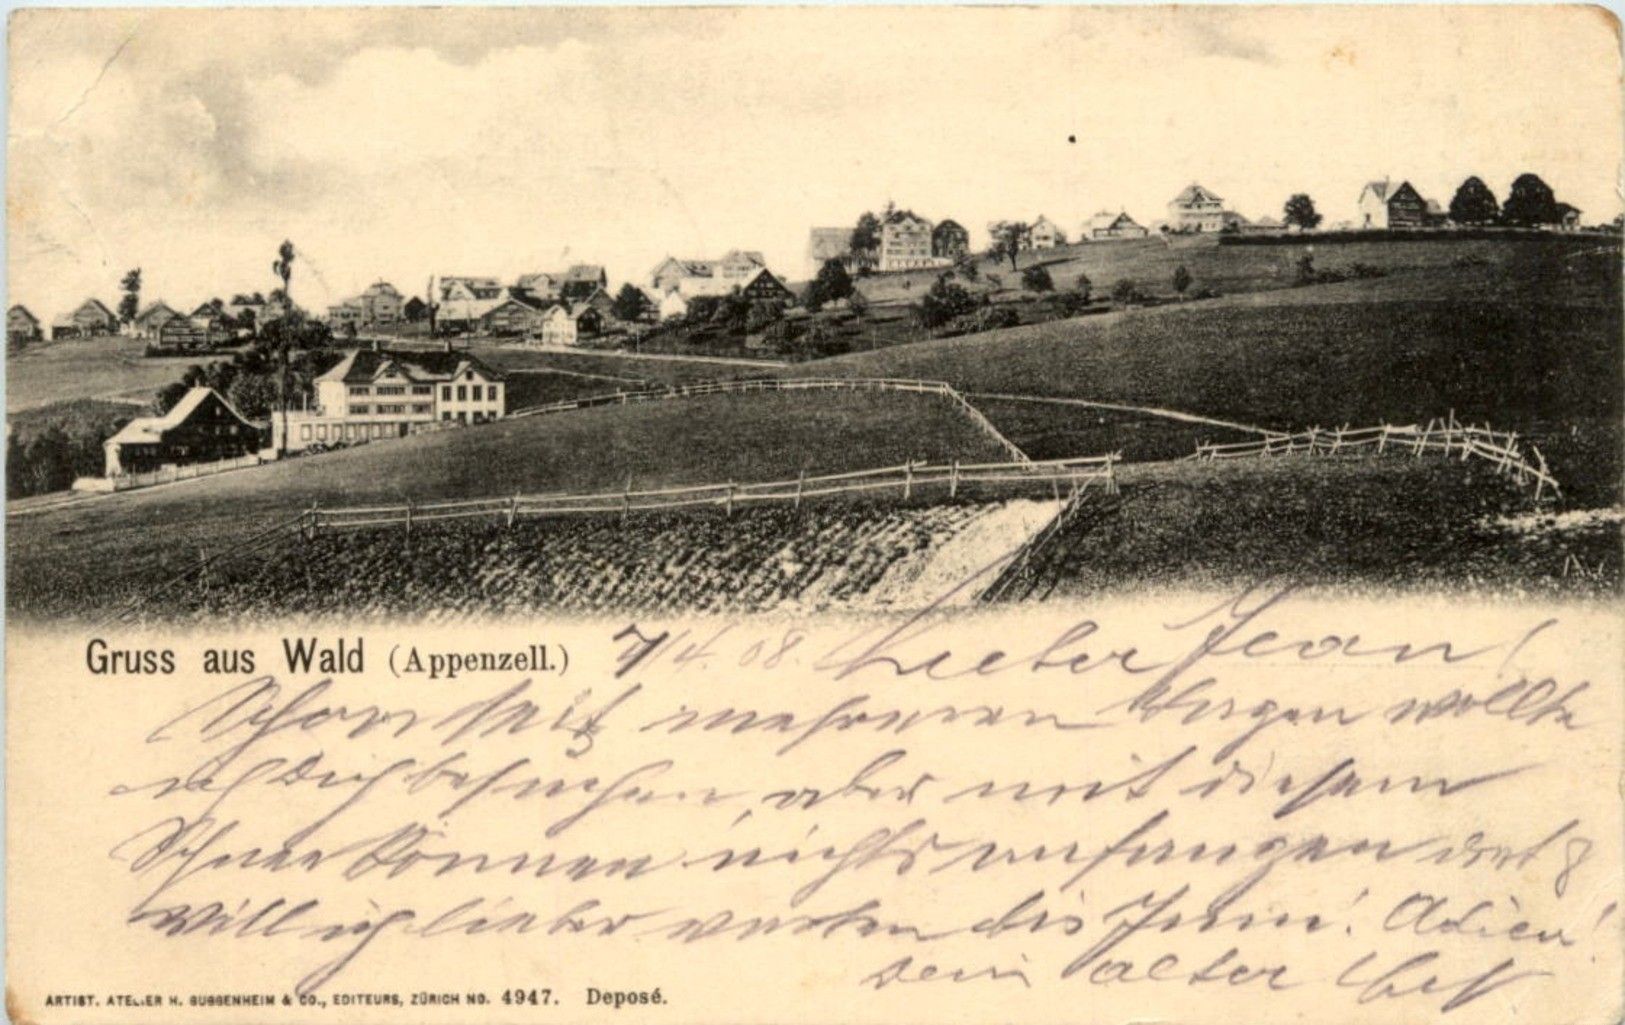 Gruss aus Wald (Appenzell.) 7/4. 08. Lieber Jean!
Schon seit mehreren wollte
ich Dich besuchen, aber mit diesem
Schnee können nichts anfangen
will ich lieber warten bis Juni! Adieu!
Dein alter
ARTIST. ATELIER H. GUGGENHEIM & CO., EDITEURS, ZÜRICH NO. 4947. Deposé.